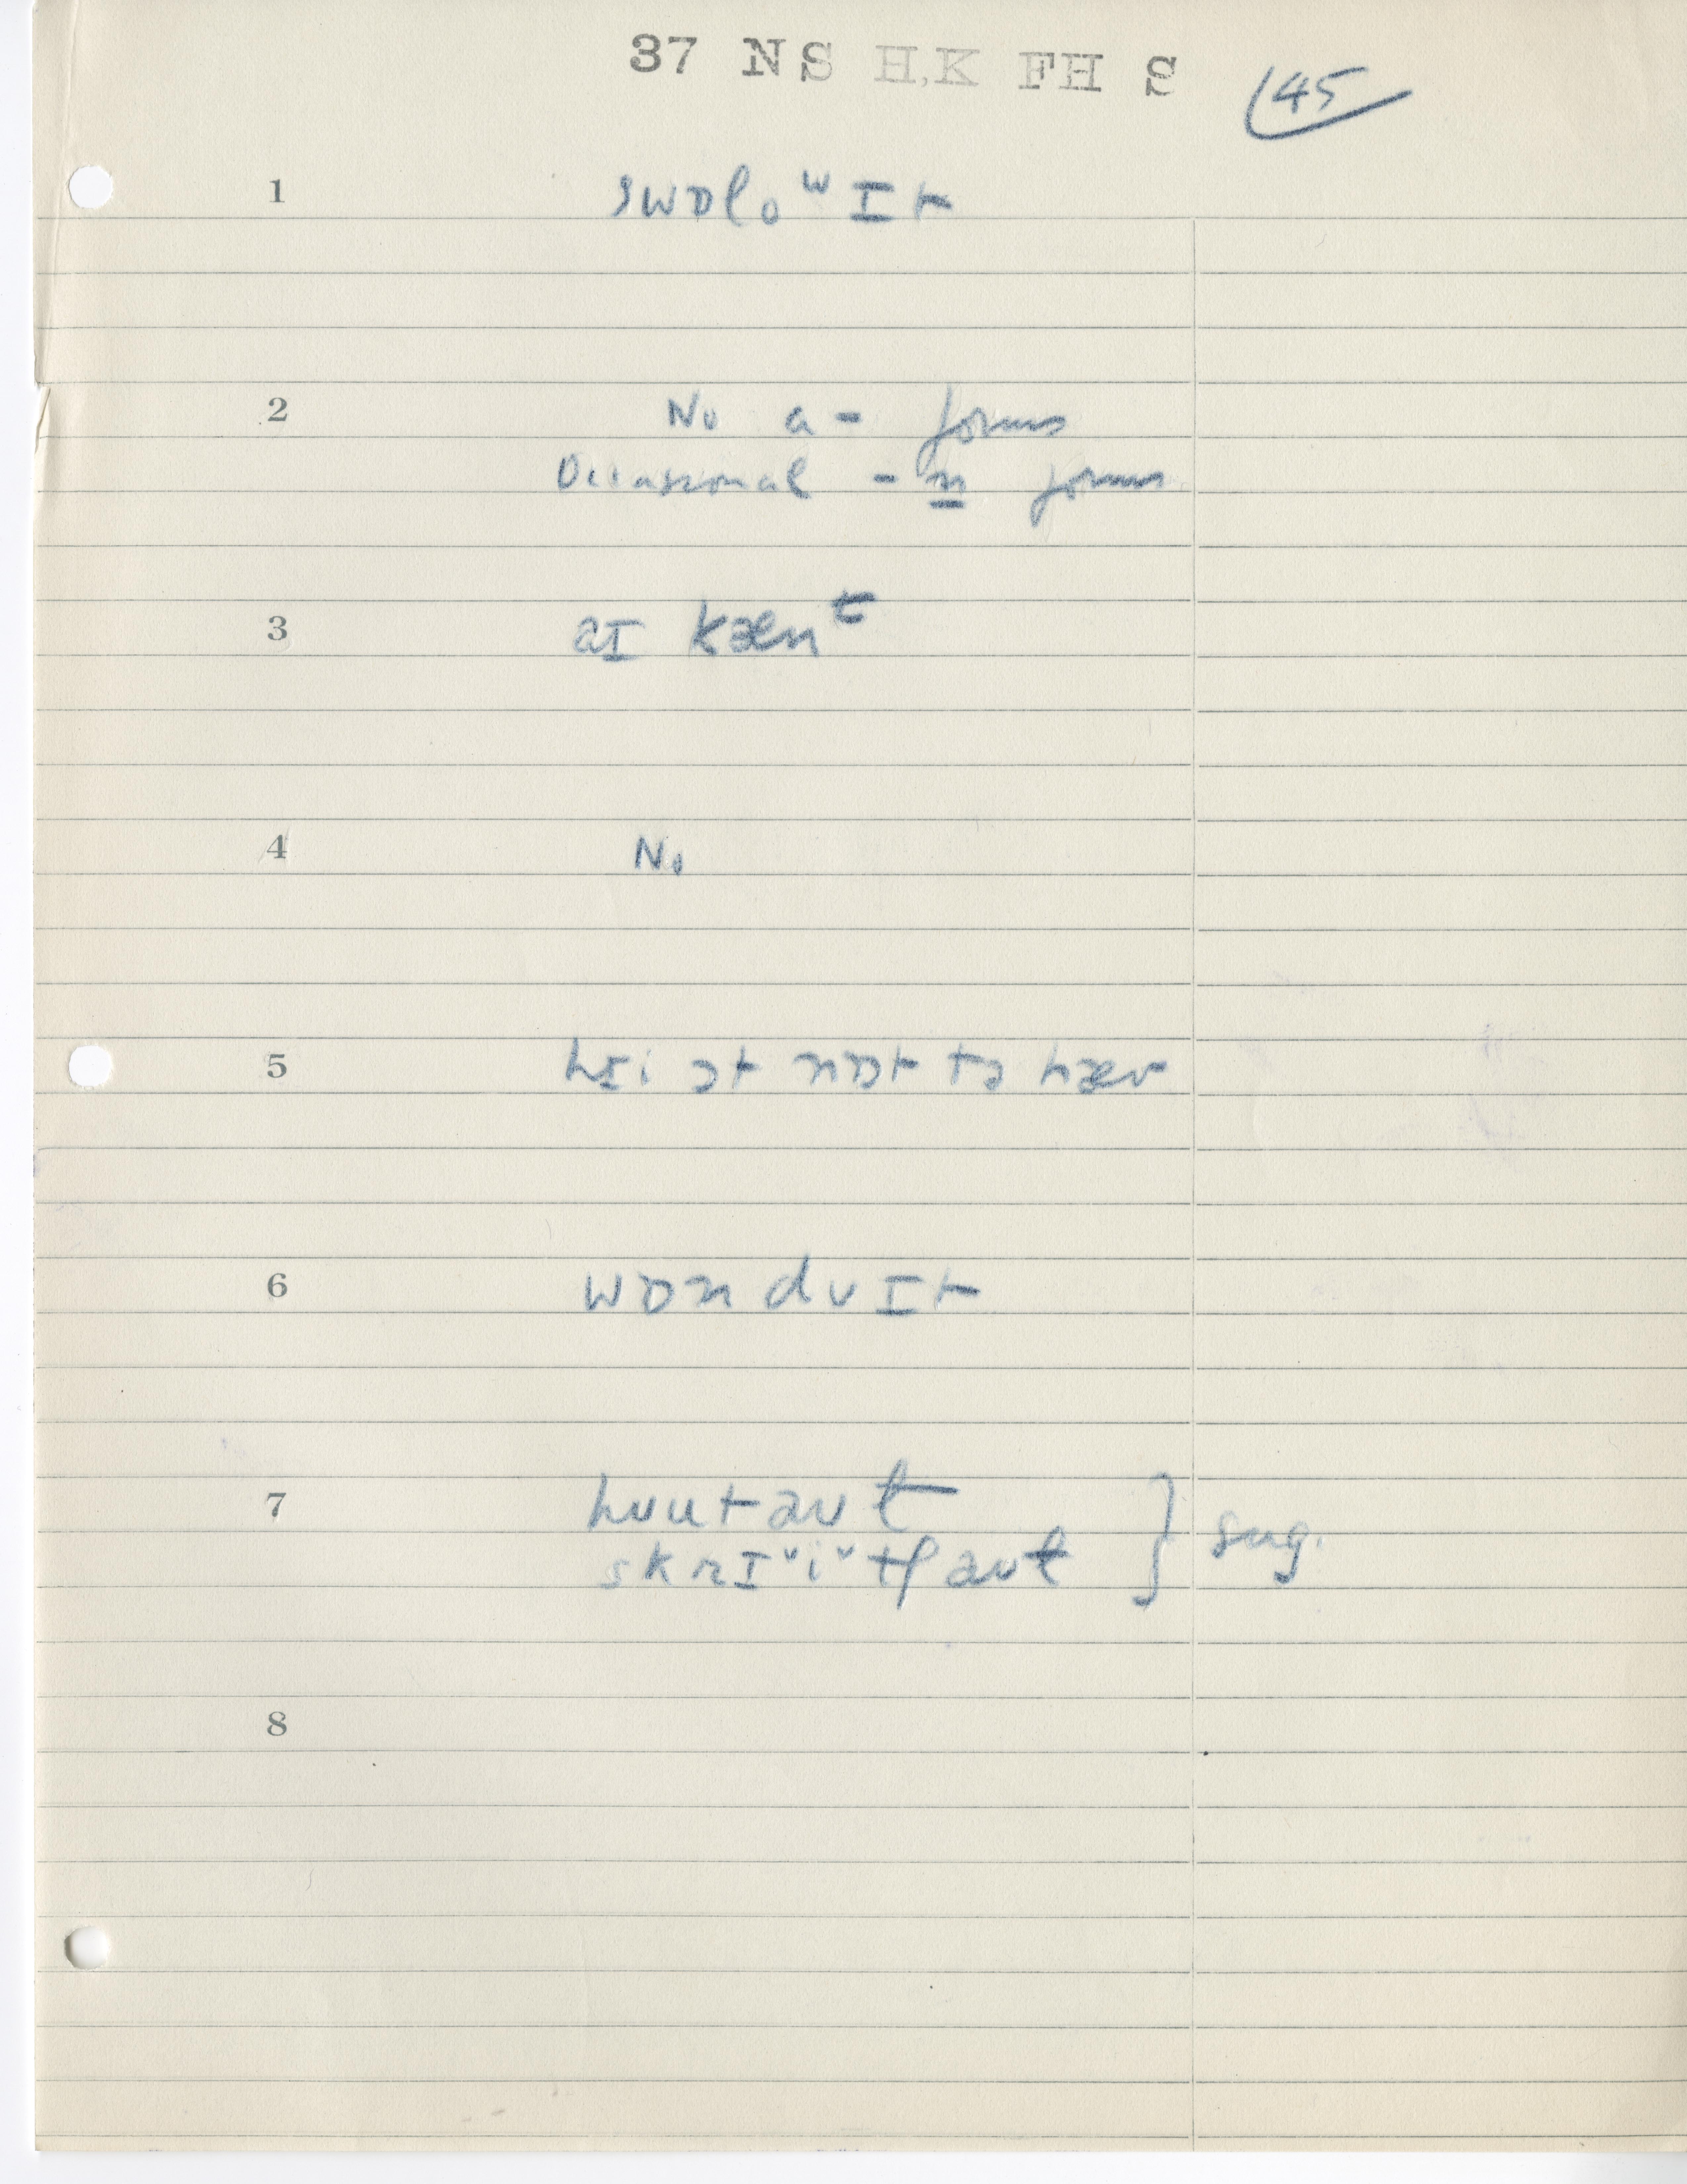 37 NS H,K FH S 45
1 swɒloʷɪt
2 No a- forms
Occasional -n forms
3 aɪ kænᵗ
4 No
5 hɪi ɔt nɒt tə hæv
6 wɒn dʊɪt
7 hʊutaʊt
skrɪ˅i˅tʃaʊt } sug.
8